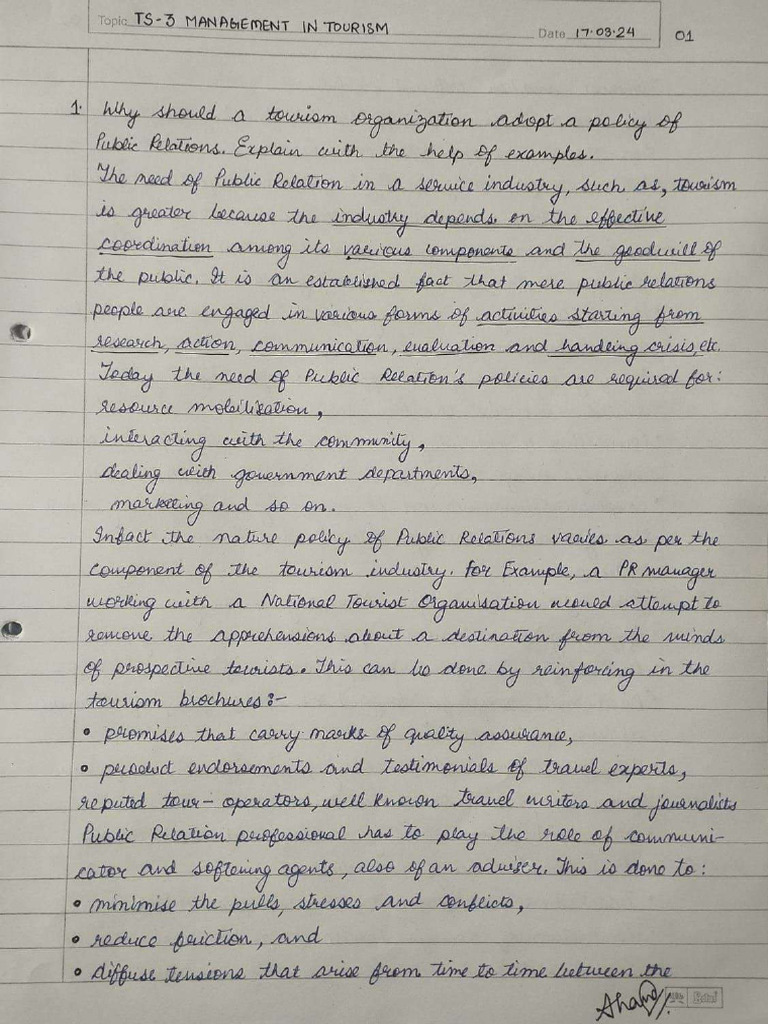 Topic TS-3 MANAGEMENT IN TOURISM
Date 17.03.24
01
1. Why should a tourism organization adopt a policy of
Public Relations. Explain with the help of examples.
The need of Public Relation in a service industry, such as, tourism
is greater because the industry depends on the effective
coordination among its various components and the goodwill of
the public. It is an established fact that mere public relations
people are engaged in various forms of activities starting from
research, action, communication, evaluation and handling crisis, etc.
Today the need of Public Relation's policies are required for:
resource mobilisation,
interacting with the community,
dealing with government departments,
marketing and so on.
Infact the nature policy of Public Relations varies as per the
component of the tourism industry. For Example, a PR manager
working with a National Tourist Organisation would attempt to
remove the apprehensions about a destination from the minds
of prospective tourists. This can be done by reinforcing in the
tourism brochures :-
• promises that carry marks of quality assurance,
• product endorsements and testimonials of travel experts,
reputed tour-operators, well known travel writers and journalists
Public Relation professional has to play the role of communi-
cator and softening agents, also of an adviser. This is done to:
• minimise the pulls, stresses and conflicts,
• reduce friction, and
• diffuse tensions that arise from time to time between the